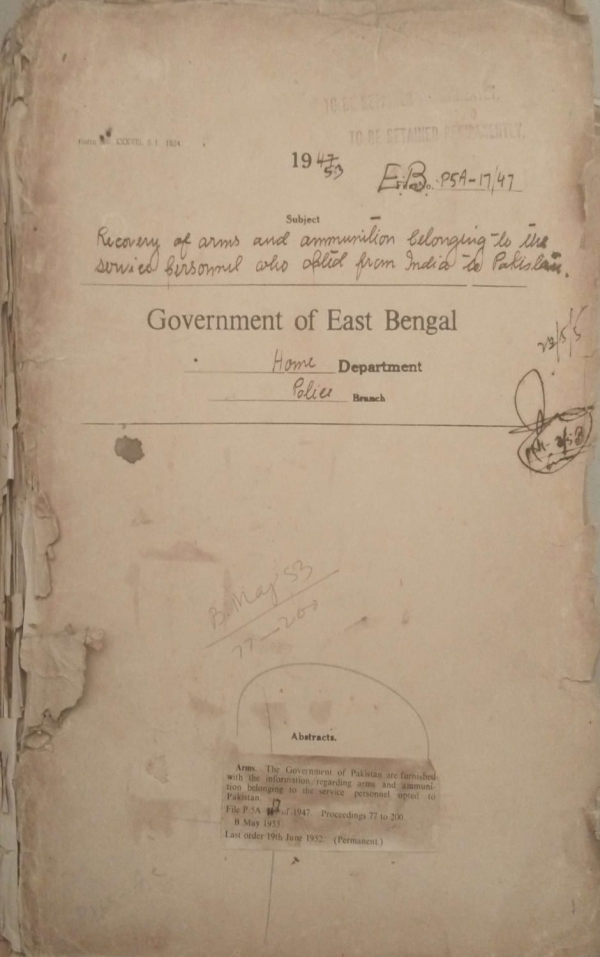 TO BE RETAINED PERMANENTLY.
TO BE RETAINED PERMANENTLY.
1947
53
E.B. P5A-17/47
Subject
Recovery of arms and ammunition belonging to the
service personnel who opted from India to Pakistan.
Government of East Bengal
Home Department
Police Branch
B. May 53
77-200
Abstracts.
Arms. The Government of Pakistan are furnished
with the information, regarding arms and ammuni-
tion belonging to the service personnel opted to
Pakistan.
File P-5A 17 of 1947. Proceedings 77 to 200
B May 1953
Last order 19th June 1952. (Permanent.)